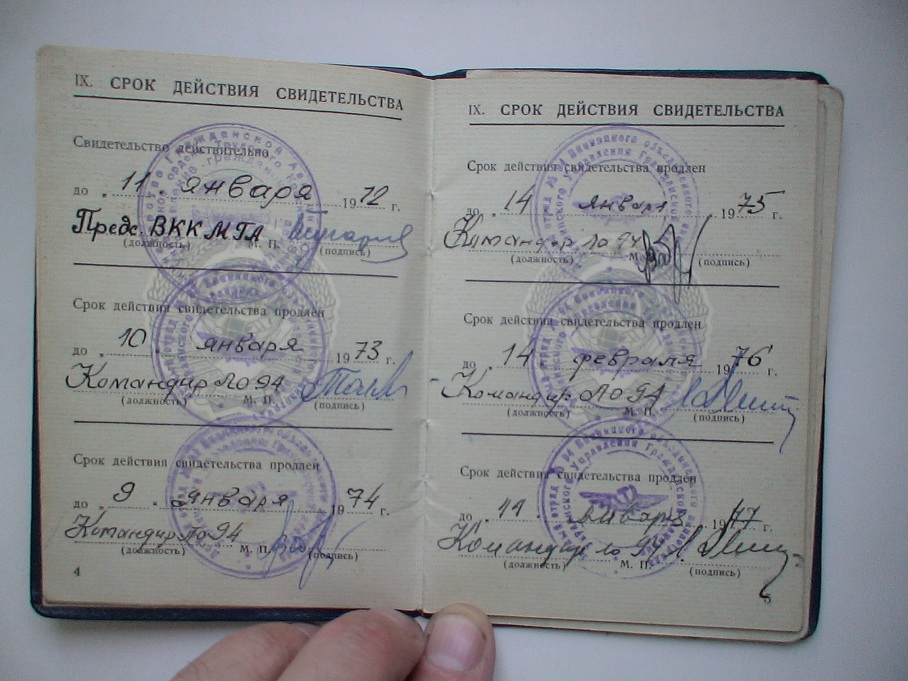 IX. СРОК ДЕЙСТВИЯ СВИДЕТЕЛЬСТВА
Свидетельство действительно
до „ 11 „ января 1972 г.
Предс. ВККМГА
(должность) М. П. (подпись)
Срок действия свидетельства продлен
до „ 10 „ января 1973 г.
Командир ло 94
(должность) М. П. (подпись)
Срок действия свидетельства продлен
до „ 9 „ января 1974 г.
Командир ло 94
(должность) М. П. (подпись)
4
IX. СРОК ДЕЙСТВИЯ СВИДЕТЕЛЬСТВА
Срок действия свидетельства продлен
до „ 14 января 1975 г.
Командир ло 94
(должность) М. П. (подпись)
Срок действия свидетельства продлен
до „ 14 февраля 1976 г.
Командир ло 94
(должность) М. П. (подпись)
Срок действия свидетельства продлен
до „ 11 января 1977 г.
Командир ло 94
(должность) М. П. (подпись)